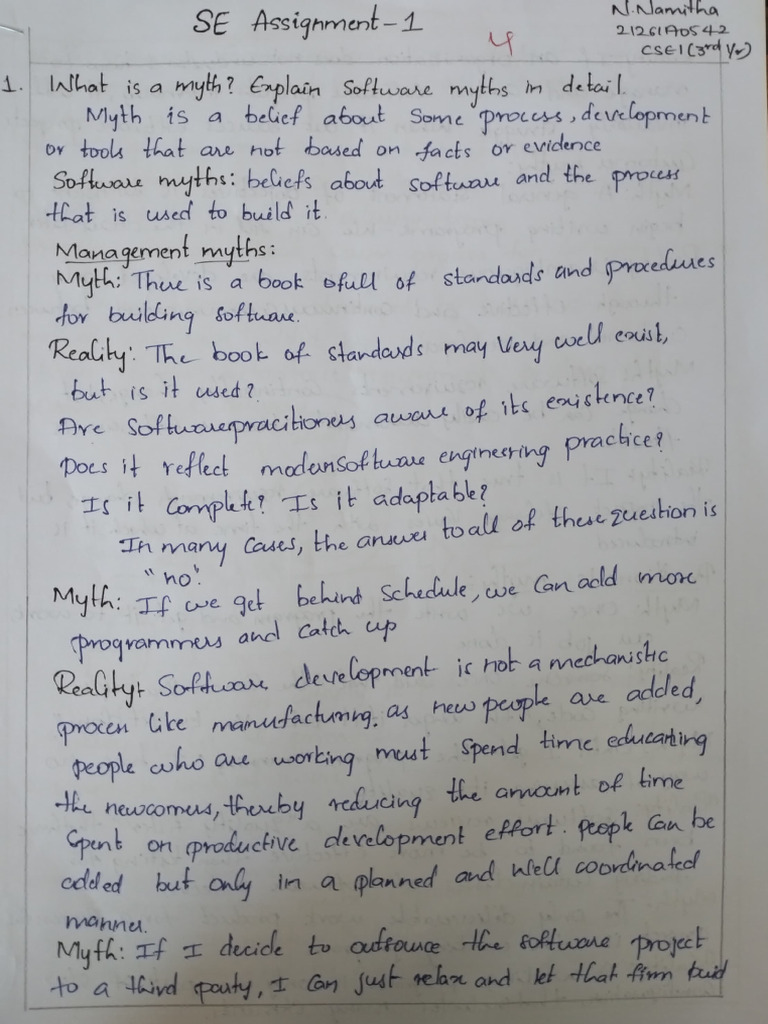 SE Assignment-1
4
N.Namitha
21261A0542
CSE1(3rd Yr)
1. What is a myth? Explain Software myths in detail.
Myth is a belief about some process, development
or tools that are not based on facts or evidence
Software myths: beliefs about software and the process
that is used to build it.
Management myths:
Myth: There is a book full of standards and procedures
for building software.
Reality: The book of standards may very well exist,
but is it used?
Are Softwarepracitioners aware of its existence?
Does it reflect modernSoftware engineering practice?
Is it complete? Is it adaptable?
In many cases, the answer to all of these question is
"no".
Myth: If we get behind schedule, we can add more
programmers and catch up
Reality: Software development is not a mechanistic
process like manufacturing. as new people are added,
people who are working must spend time educating
the newcomers, thereby reducing the amount of time
spent on productive development effort. People can be
added but only in a planned and well coordinated
manner.
Myth: If I decide to outsource the software project
to a third party, I can just relax and let that firm buid